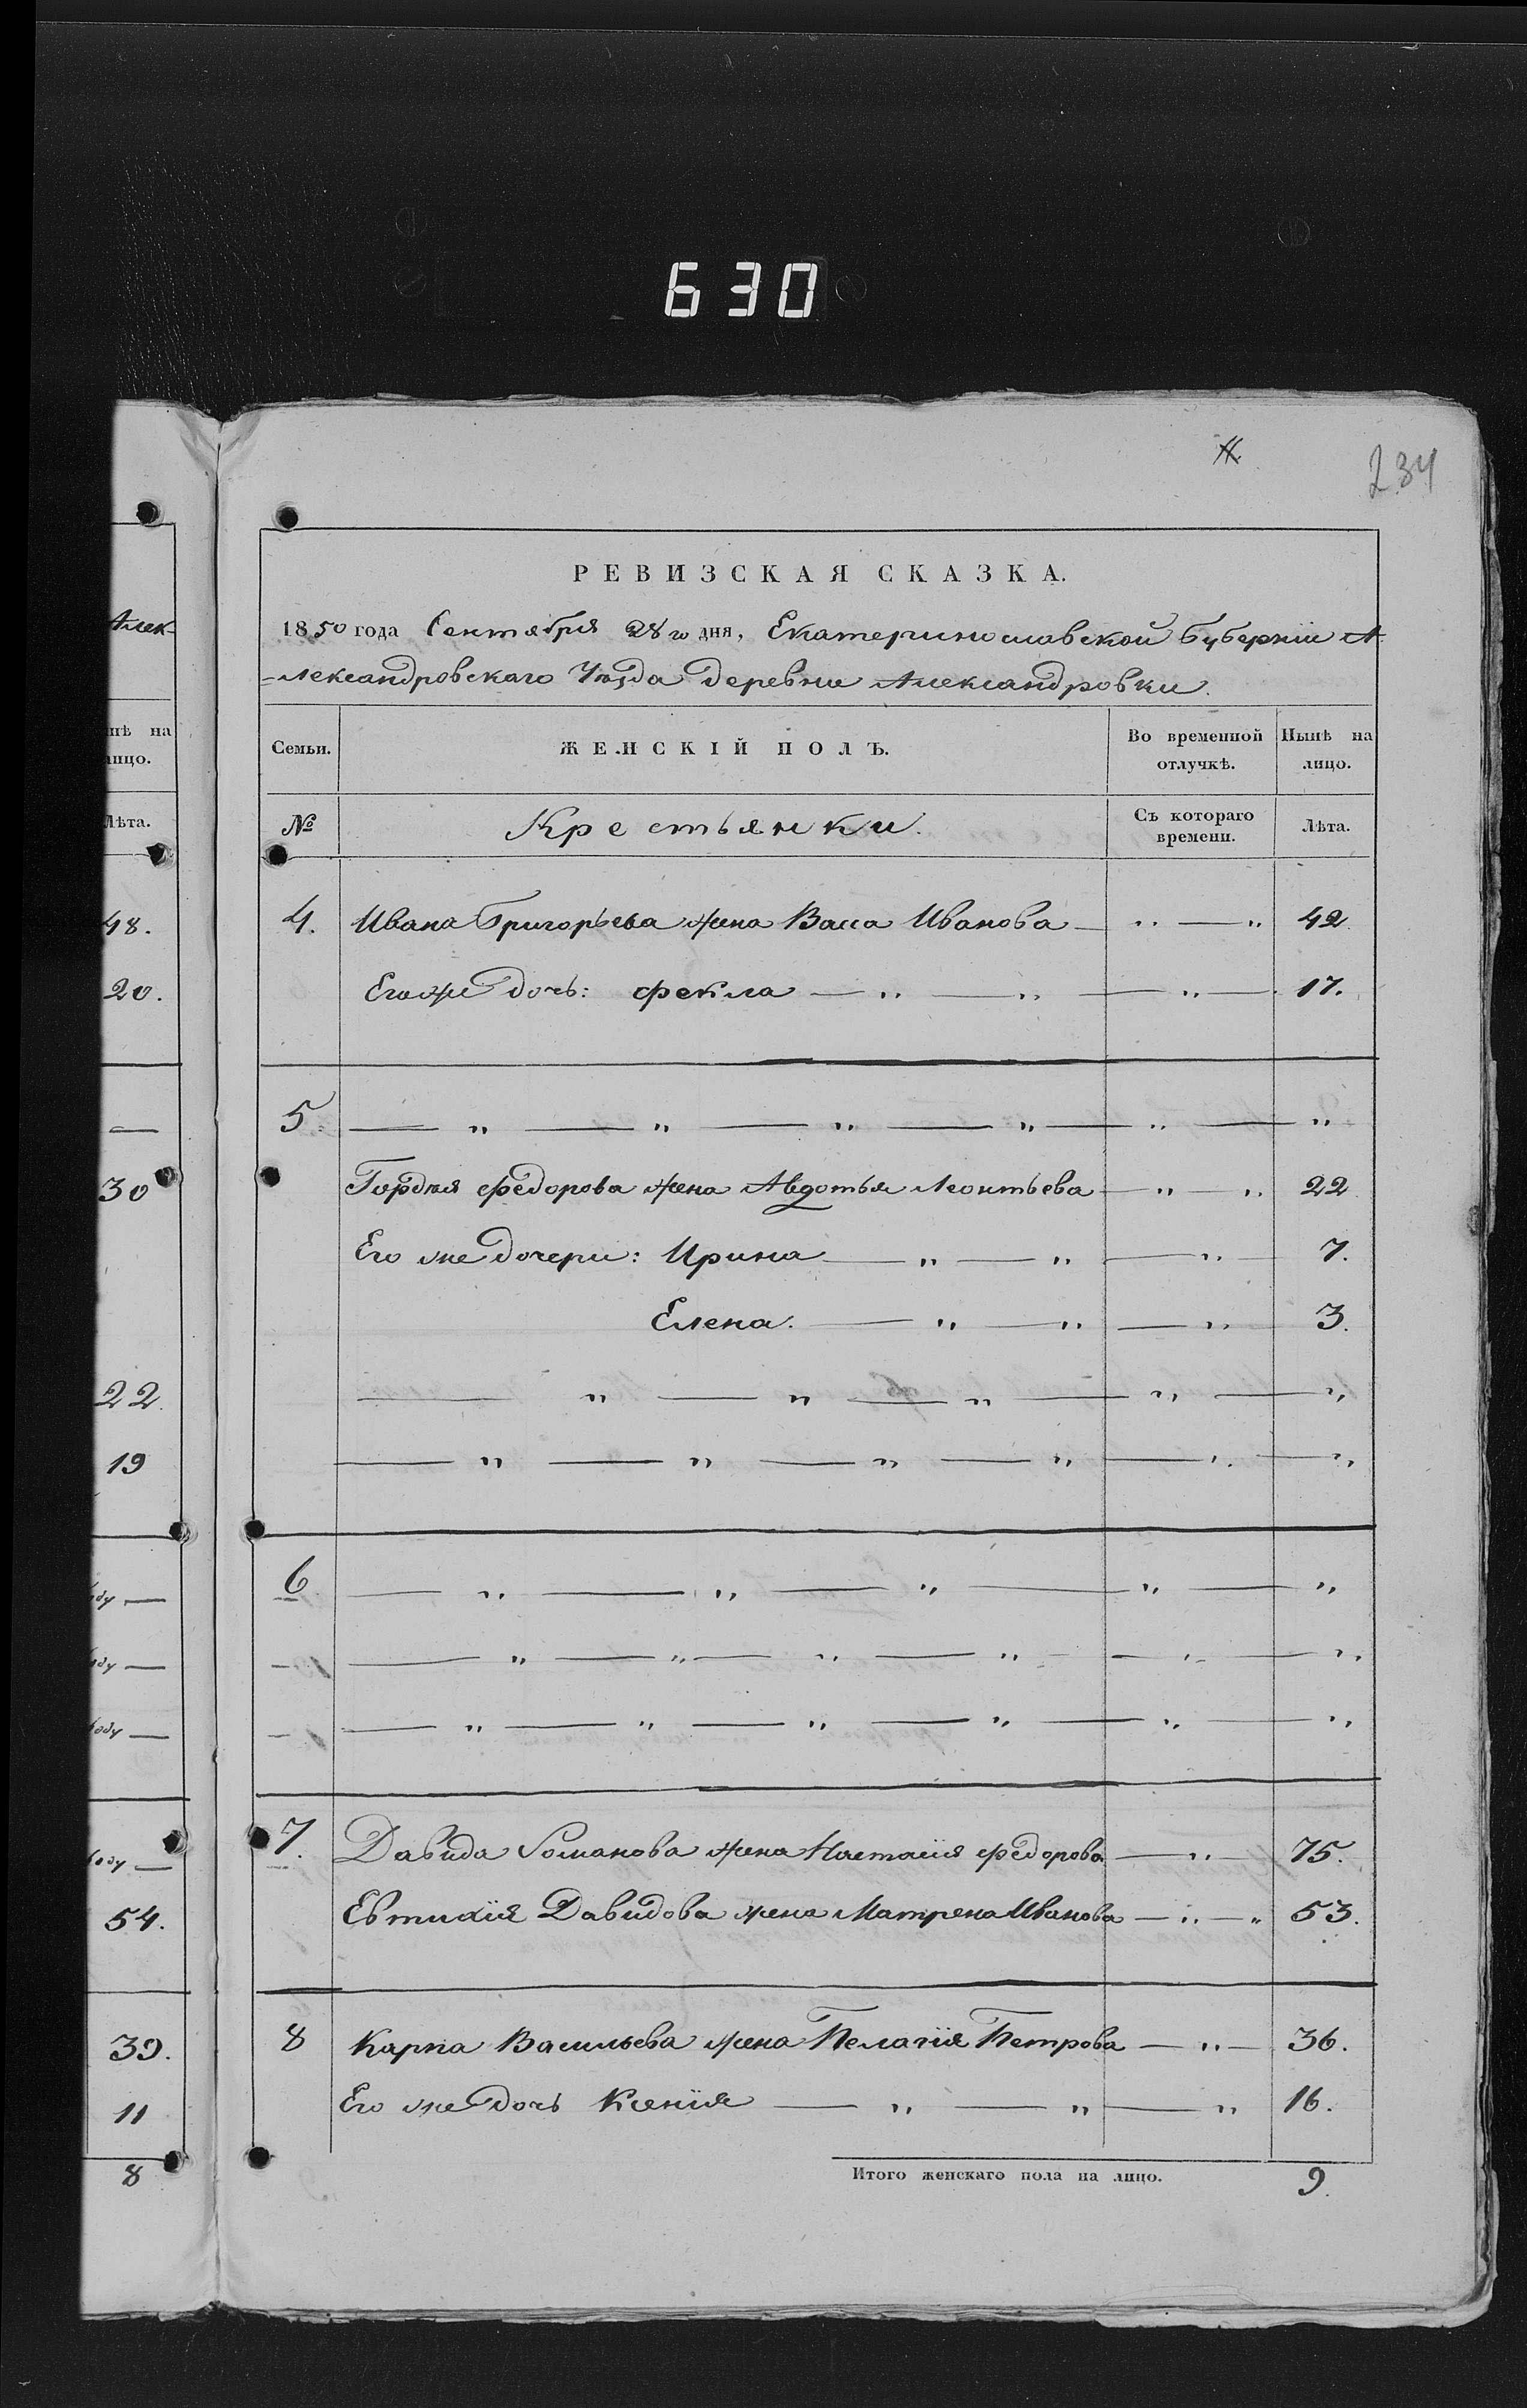 630
234
Алек-
нѣ на
лицо.
Лѣта.
48.
20.
—
30
22.
19
54.
39.
11
8
РЕВИЗСКАЯ СКАЗКА.
1850 года Сентября 28го дня, Екатеринославской Губерніи А-
-лександровскаго Уѣзда деревни Александровки.
Семьи. ЖЕНСКІЙ ПОЛЪ. Во временной отлучкѣ. Нынѣ на лицо.
№ Крестьянки. Съ котораго времени. Лѣта.
4. Ивана Григорьева жена Васса Иванова — „ — „ 42.
Егоже дочь: Фекла — „ — „ — „ — 17.
5. — „ — „ — „ — „ — „ — „
Гордѣя Федорова жена Авдотья Леонтьева — „ — „ 22
Его же дочери: Ирина — „ — „ — „ — 7.
Елена. — „ — „ — „ — 3.
— „ — „ — „ — „ — „
— „ — „ — „ — „ — „ — „
6 — „ — „ — „ — „ — „
— „ — „ — „ — „ — „ — „
— „ — „ — „ — „ — „ — „
7. Давида Романова жена Настасія Федорова — „ — 75.
Евтихія Давидова жена Матрена Иванова — „ — „ 53.
8 Карпа Васильева жена Пелагія Петрова — „ — 36.
Его же дочь Ксенія — „ — „ — „ 16.
Итого женскаго пола на лицо. 9.